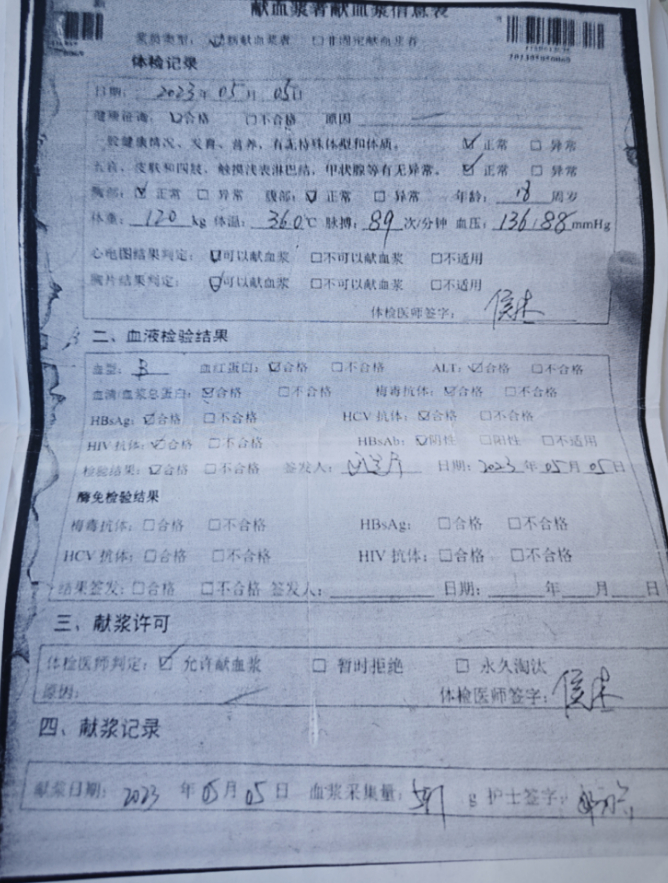 献血浆者献血浆信息表
浆员类型：☑新献血浆者 □非固定献血浆者
体检记录
日期：2023年05月05日
健康征询：☑合格 □不合格 原因
一般健康情况、发育、营养，有无特殊体型和体质。 ☑正常 □异常
五官、皮肤和四肢，触摸浅表淋巴结，甲状腺等有无异常。 ☑正常 □异常
胸部：☑正常 □异常 腹部：☑正常 □异常 年龄：18周岁
体重：120kg 体温：36.0℃ 脉搏：89次/分钟 血压：136/88mmHg
心电图结果判定：☑可以献血浆 □不可以献血浆 □不适用
胸片结果判定：☑可以献血浆 □不可以献血浆 □不适用
体检医师签字：
二、血液检验结果
血型：B 血红蛋白：☑合格 □不合格 ALT：☑合格 □不合格
血清/血浆总蛋白：☑合格 □不合格 梅毒抗体：☑合格 □不合格
HBsAg：☑合格 □不合格 HCV抗体：☑合格 □不合格
HIV抗体：☑合格 □不合格 HBsAb：☑阴性 □阳性 □不适用
检验结果：☑合格 □不合格 签发人： 日期：2023年05月05日
酶免检验结果
梅毒抗体：□合格 □不合格 HBsAg：□合格 □不合格
HCV抗体：□合格 □不合格 HIV抗体：□合格 □不合格
结果签发：□合格 □不合格 签发人： 日期： 年 月 日
三、献浆许可
体检医师判定：☑允许献血浆 □暂时拒绝 □永久淘汰
原因： 体检医师签字：
四、献浆记录
献浆日期：2023年05月05日 血浆采集量： g 护士签字：